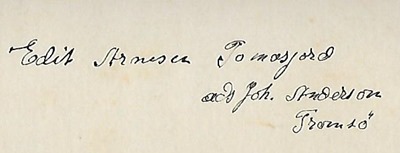 Edit Arnesen Tomasjord
ads Joh. Anderson
Tromsö